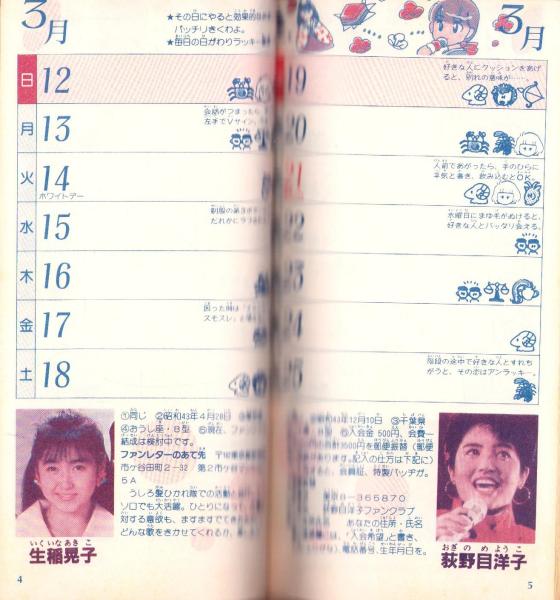 3月
★その日にやると効果的
バッチリきくわよ。
★毎日の日がわりラッキー
日 12
月 13
会話がつまったら
左手でVサイン
火 14
ホワイトデー
水 15
制服の第3ボタ
だれかにラブ
木 16
金 17
困った時は
スモスレ
土 18
①同じ ②昭和43年4月28日
④おうし座・B型 ⑥現在、ファン
結成は検討中です。
ファンレターのあて先
市ヶ谷田町2-32 第2市ケ
5A
うしろ髪ひかれ隊での活動
ソロでも大活躍。ひとりになっ
対する意欲も、ますますでてき
どんな歌をきかせてくれるか、
いくいなあきこ
生稲晃子
4
3月
好きな人にクッションをあげ
ると、別れの意味が……。
19
20
21
人前であがったら、手のひらに
平気と書き、飲み込むとOK。
22
水曜日にまゆ毛がぬけると、
好きな人とバッタリ会える。
23
24
25
階段の途中で好きな人とすれち
がうと、その恋はアンラッキー。
昭和43年12月10日 ③千葉県
⑥入会金 500円、会費一
3500円を郵便振替(郵便
記入の仕方は下記に)
会員証、特製バッヂが。
8-365870
荻野目洋子ファンクラブ
あなたの住所・氏名
は、「入会希望」と書き、
電話番号、生年月日を。
おぎのめようこ
荻野目洋子
5